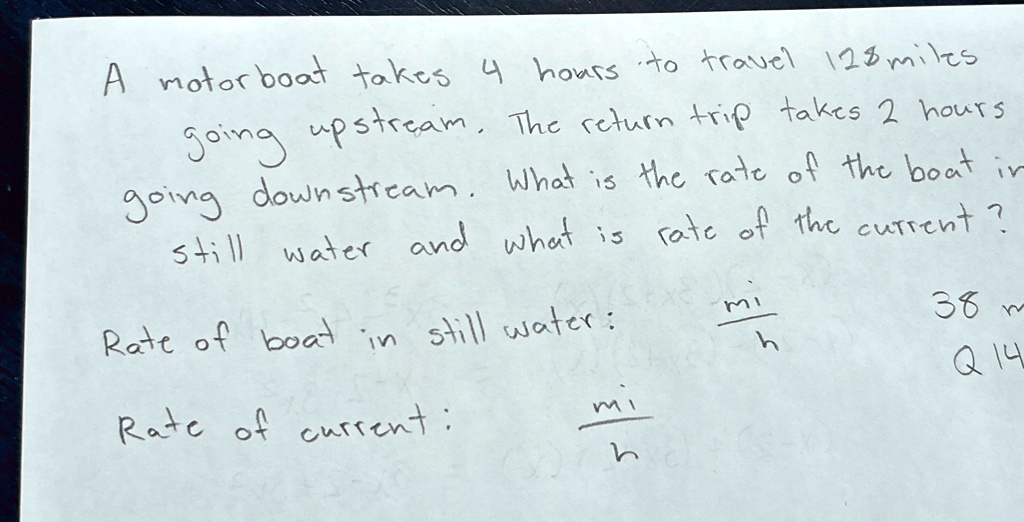 A motorboat takes 4 hours to travel 128 miles
going upstream. The return trip takes 2 hours
going downstream. What is the rate of the boat in
still water and what is rate of the current?
Rate of boat in still water: mi/h
38 m
Q 14
Rate of current: mi/h